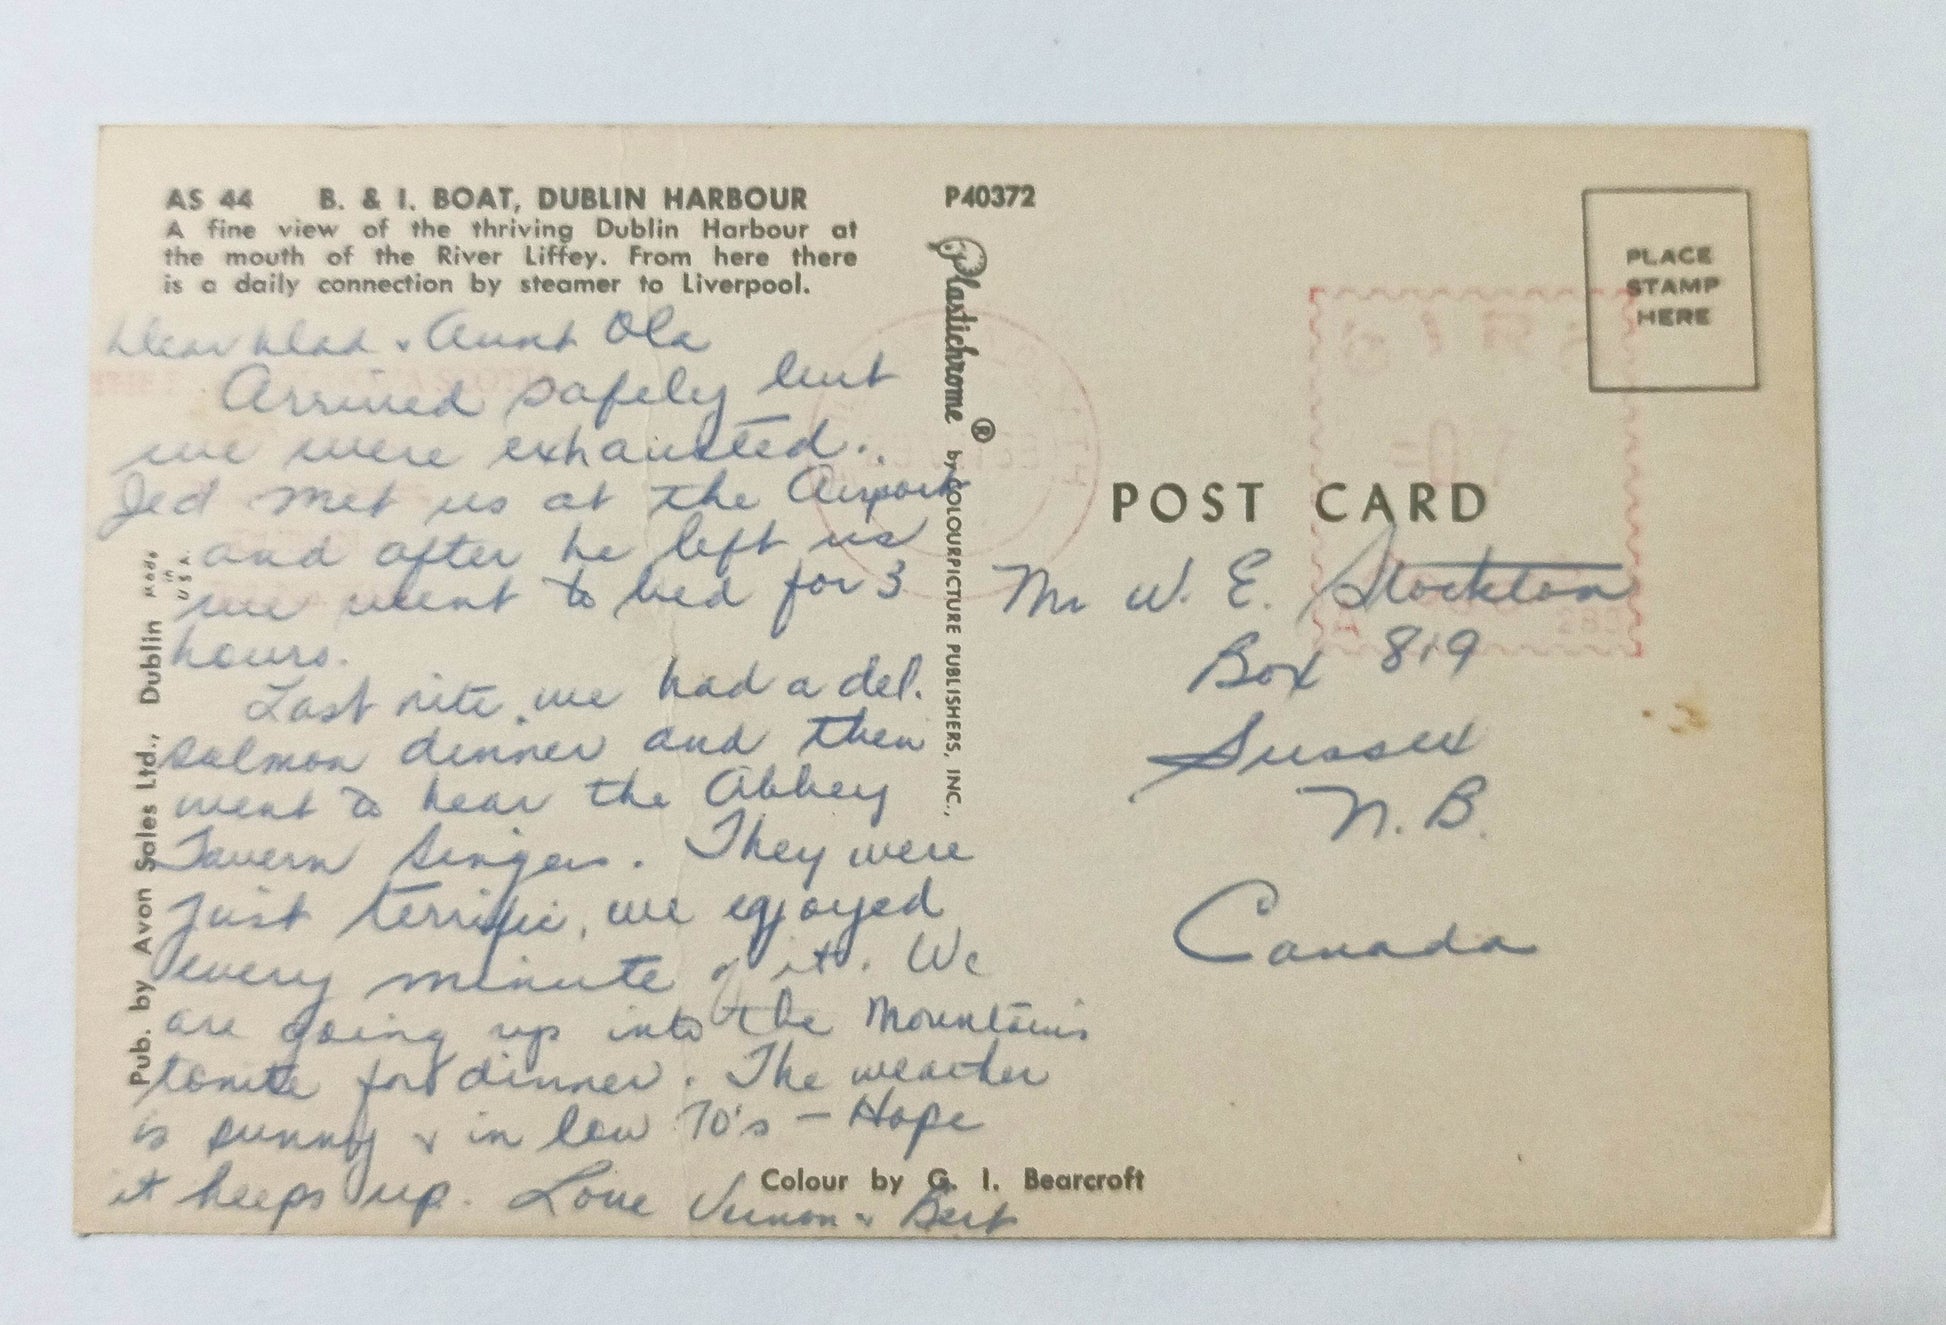 AS 44 B. & I. BOAT, DUBLIN HARBOUR
A fine view of the thriving Dublin Harbour at
the mouth of the River Liffey. From here there
is a daily connection by steamer to Liverpool.
Dear Dad & Aunt Ola
Arrived safely but
we were exhausted..
Jed met us at the Airport
and after he left us
we went to bed for 3
hours.
Last nite we had a del.
salmon dinner and then
went to hear the Abbey
Tavern Singers. They were
just terrific, we enjoyed
every minute of it. We
are going up into the Mountains
tonite for dinner. The weather
is sunny & in low 70's - Hope
it keeps up. Love Vernon & Bert
Pub. by Avon Sales Ltd., Dublin
Made
in
USA
P40372
Plastichrome ® by COLOURPICTURE PUBLISHERS, INC.,
PLACE
STAMP
HERE
POST CARD
Mr W. E. Stockton
Box 819
Sussex
N. B.
Canada
Colour by G. I. Bearcroft